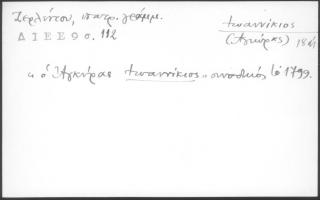 Ζερλέντου, πατρ. γράμμ.
ΔΙΕΕ 9 σ. 112
Ἰωαννίκιος
(Ἀγκύρας)
"ὁ Ἀγκύρας Ἰωαννίκιος" συνοδικός 1799.